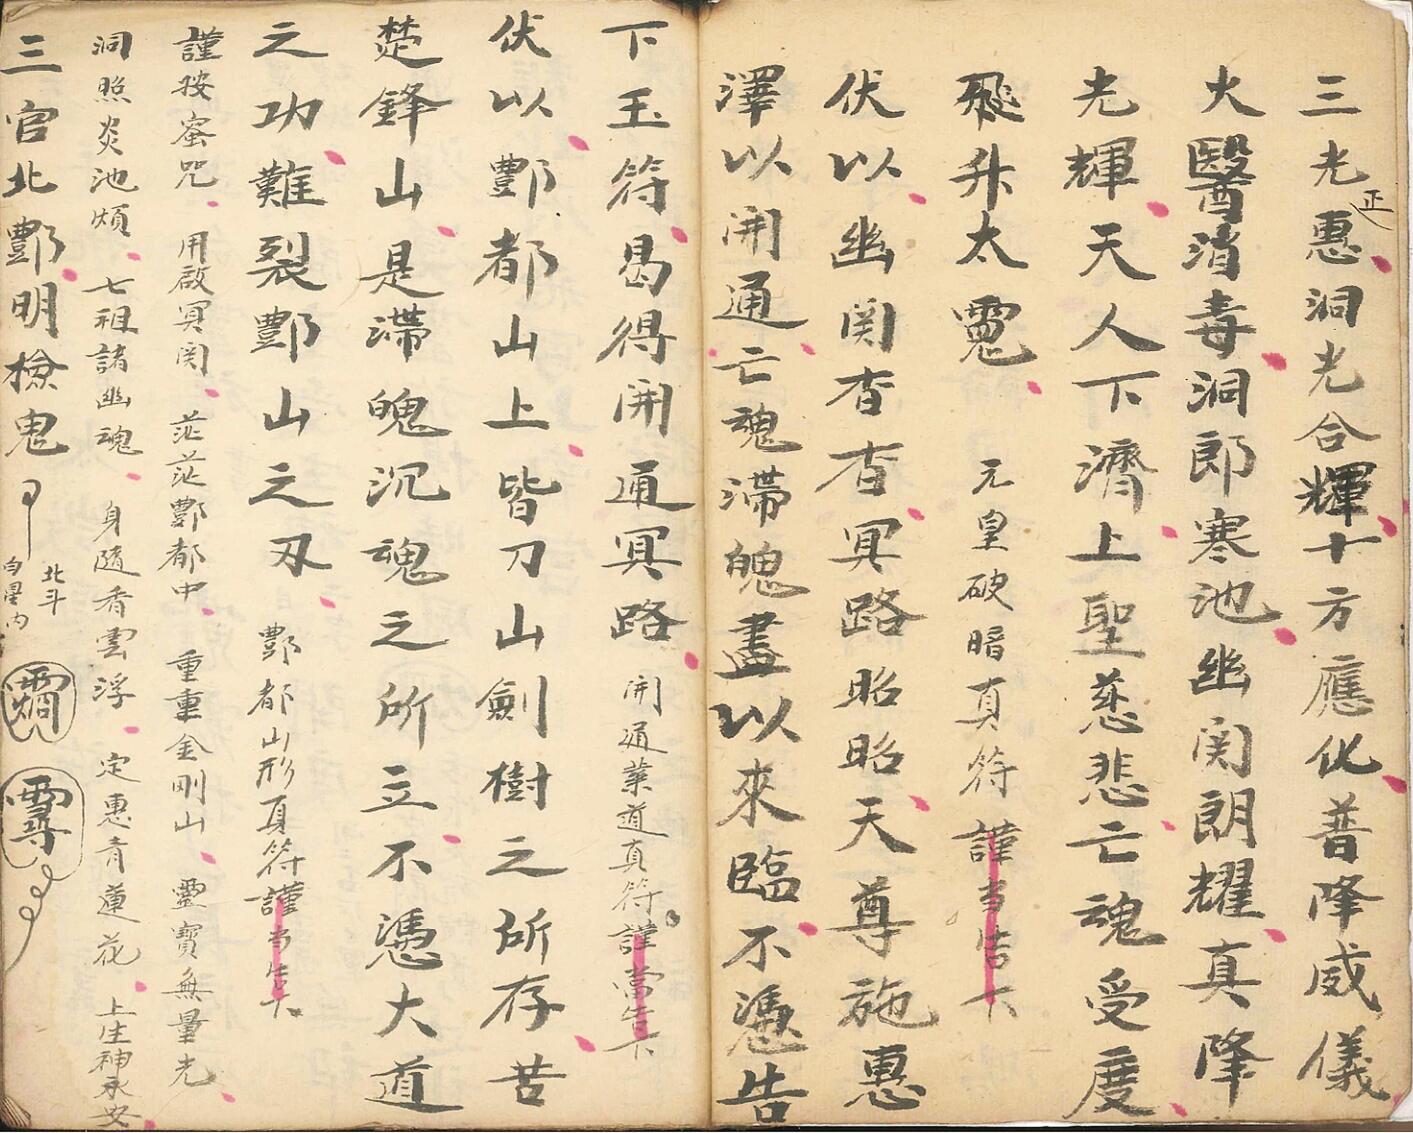 三光正惠洞光合輝十方應化普降威儀
火醫消毒洞郎寒池幽関朗耀真降
光輝天人下濟上聖慈悲亡魂受度
飛升太霐 元皇破暗真符謹当告下
伏以幽関杳杳冥路昭昭天尊施惠
澤以開通亡魂滯魄盡以來臨不憑告
下玉符曷得開通冥路 開通業道真符謹當告下
伏以酆都山上皆刀山劍樹之所存苦
楚鋒山是滯魄沉魂之所立不憑大道
之功難裂酆山之刄 酆都山形真符謹当告下
謹按蜜咒用啟冥関茫茫酆都中重重金剛山靈寶無量光
洞照炎池煩七祖諸幽魂身隨香雲浮定惠青蓮花上生神永安
三官北酆明檢鬼
北斗
向星內